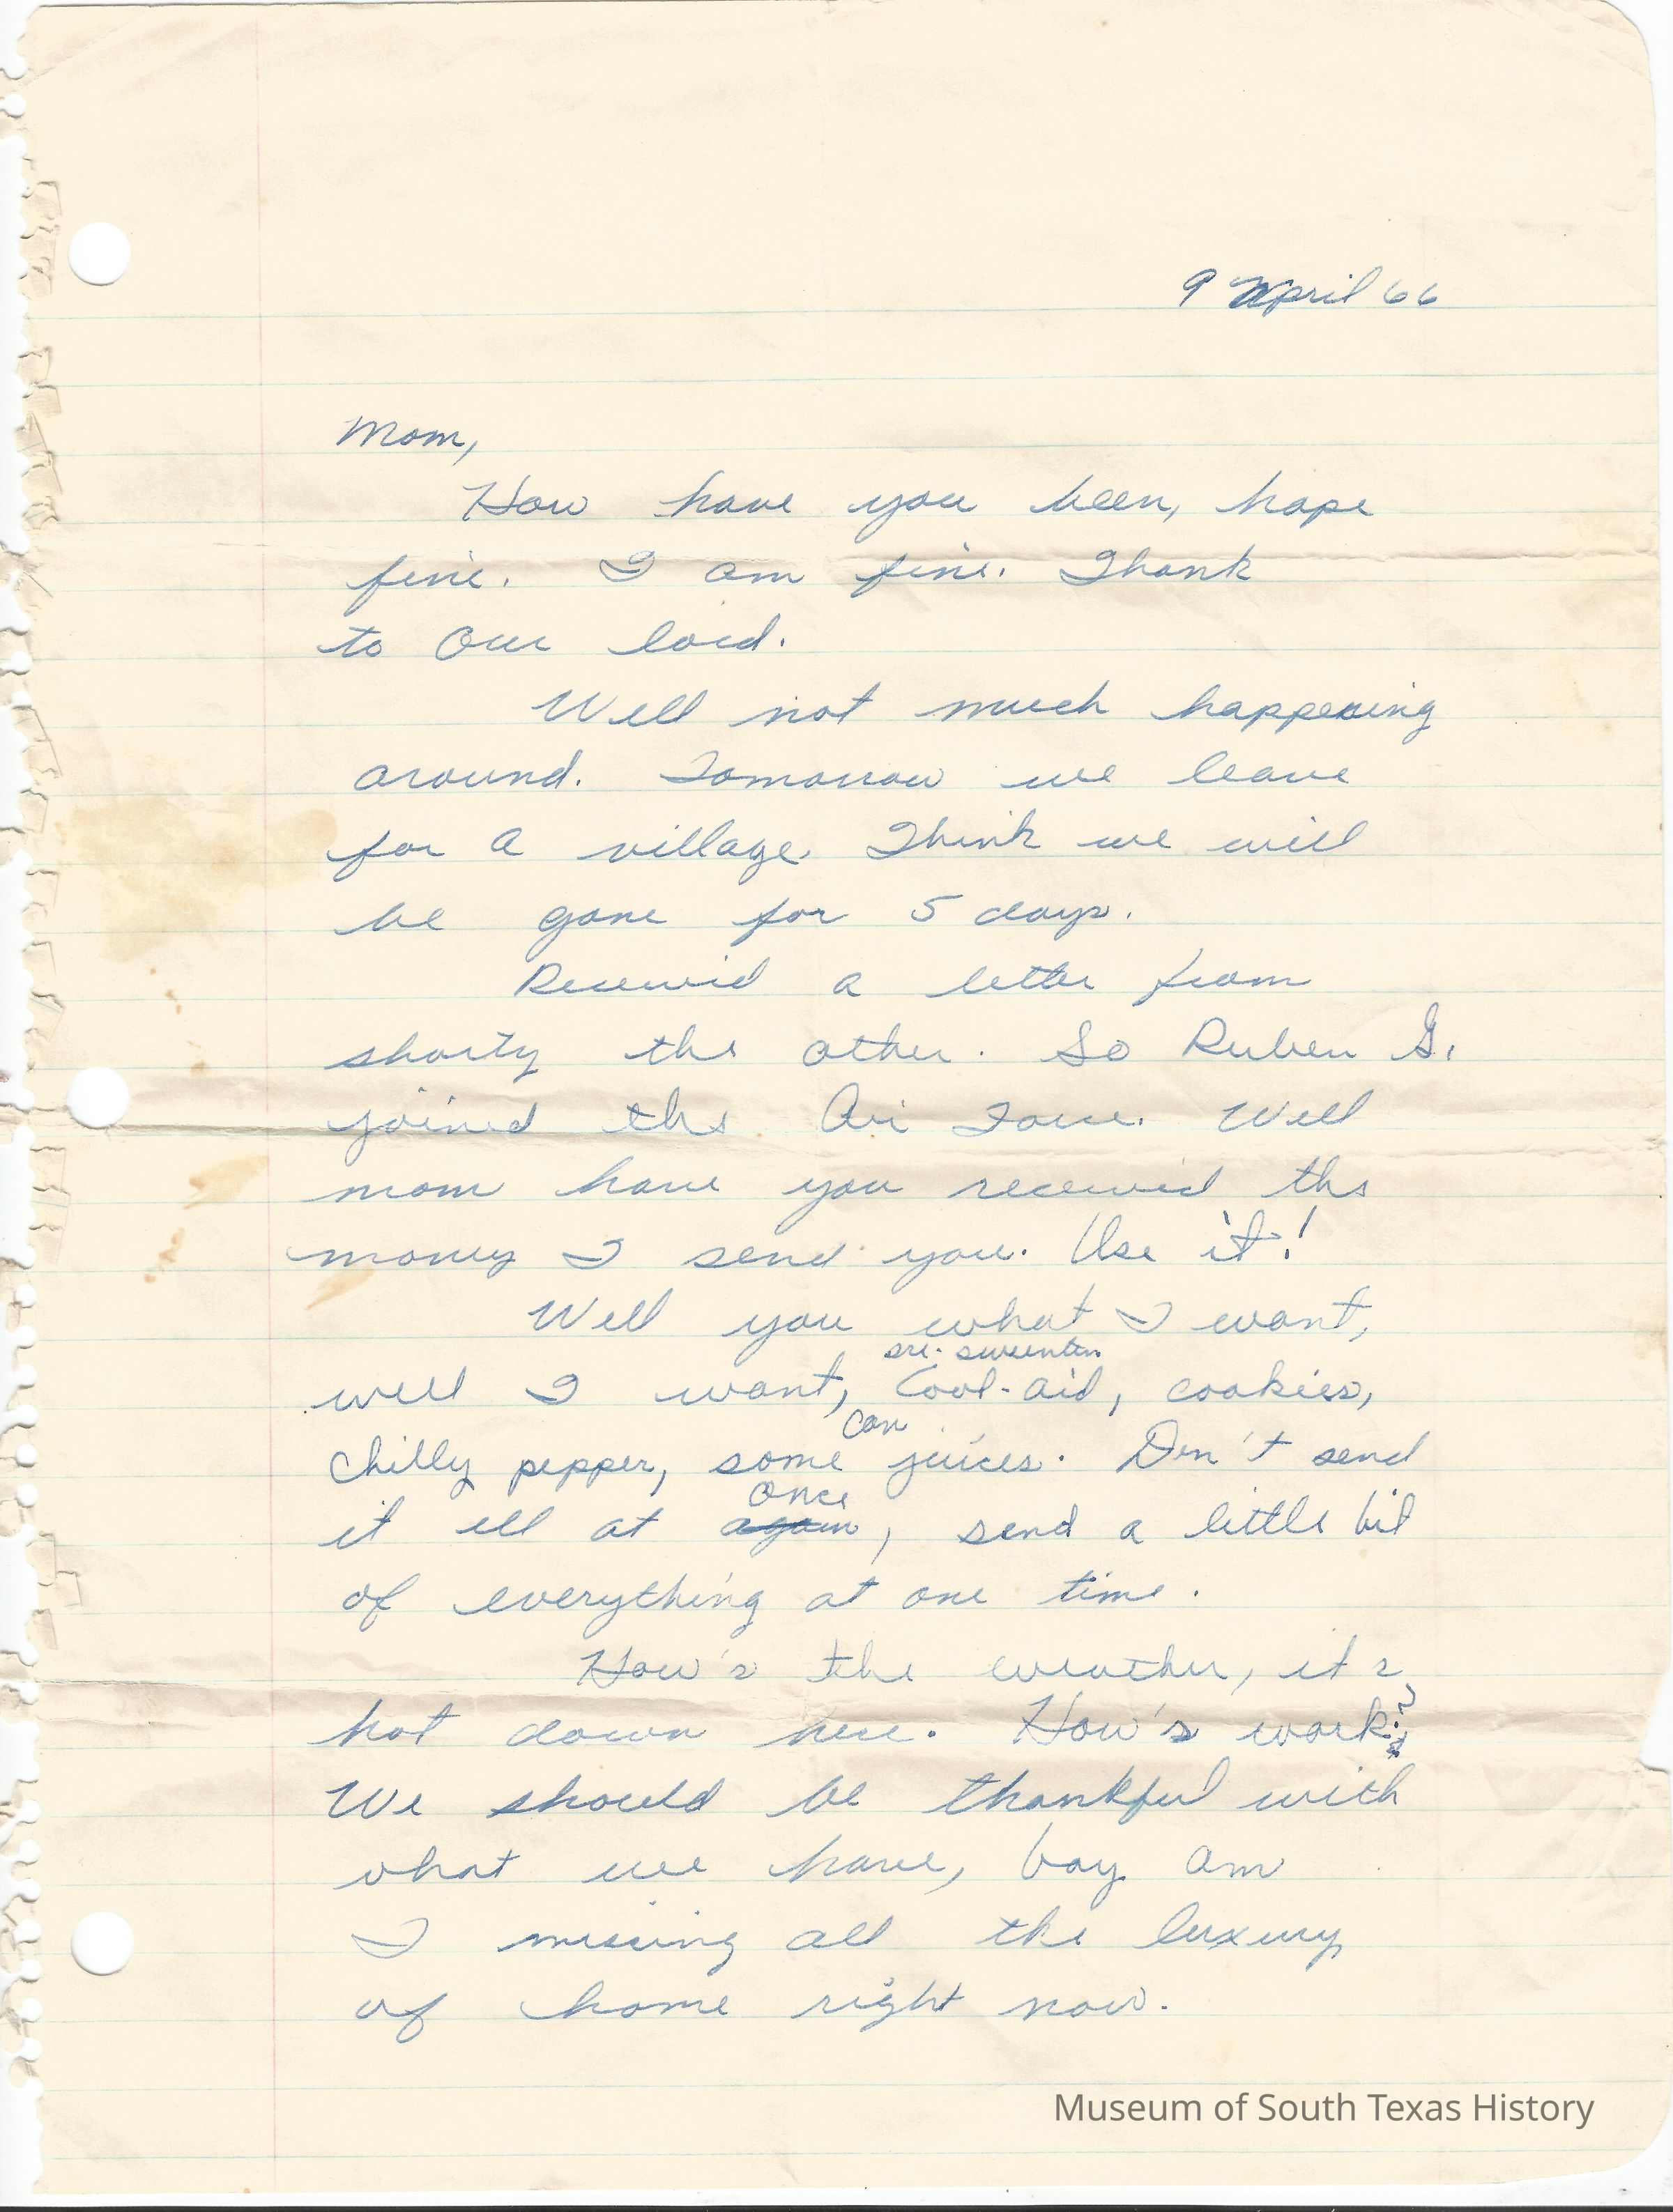 9 April 66
Mom,
How have you been, hope
fine. I am fine. Thank
to Our lord.
Well not much happening
around. Tomorrow we leave
for a village. Think we will
be gone for 5 days.
Received a letter from
shorty the other. So Ruben G.
joined the Air Force. Well
mom have you received the
money I send you. Use it!
Well you what I want,
pre. sweeten
well I want, Cool-aid, cookies,
can
chilly pepper, some juices. Don't send
once
it all at again, send a little bit
of everything at one time.
How's the weather, its
hot down here. How's work?
We should be thankful with
what we have, boy am
I missing all the luxury
of home right now.
Museum of South Texas History